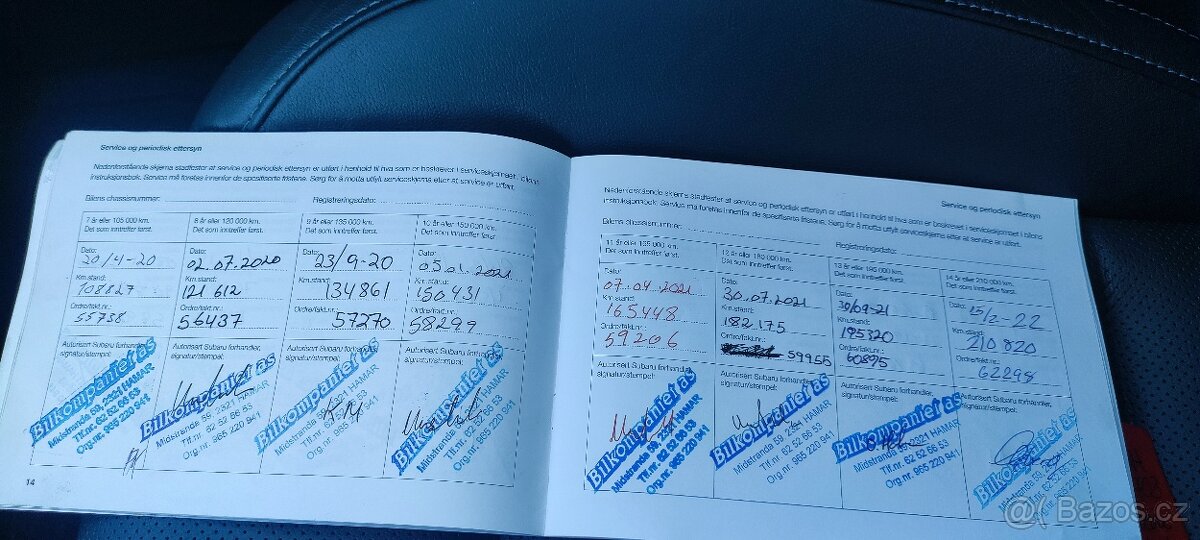 Service og periodisk ettersyn
Nedenforstående skjema stadfester at service og periodisk ettersyn er utført i henhold til hva som er beskrevet i serviceskjemaet i bilens
instruksjonsbok. Service må foretas innenfor de spesifiserte fristene. Sørg for å motta utfylt serviceskjema etter at service er utført.
Bilens chassisnummer: Registreringsdato:
7 år eller 105 000 km.
Det som inntreffer først.
Dato:
20/4-20
Km.stand:
108827
Ordre/fakt.nr.:
55738
Autorisert Subaru forhandler,
signatur/stempel:
Bilkompaniet as
Midstranda 59, 2321 HAMAR
Tlf.nr. 62 52 66 53
Org.nr. 965 220 941
8 år eller 120 000 km.
Det som inntreffer først.
Dato:
02.07.2020
Km.stand:
121 612
Ordre/fakt.nr.:
56437
Autorisert Subaru forhandler,
signatur/stempel:
Bilkompaniet as
Midstranda 59, 2321 HAMAR
Tlf.nr. 62 52 66 53
Org.nr. 965 220 941
9 år eller 135 000 km.
Det som inntreffer først.
Dato:
23/9-20
Km.stand:
134861
Ordre/fakt.nr.:
57270
Autorisert Subaru forhandler,
signatur/stempel:
Bilkompaniet as
Midstranda 59, 2321 HAMAR
Tlf.nr. 62 52 66 53
Org.nr. 965 220 941
10 år eller 150 000 km.
Det som inntreffer først.
Dato:
05.01.2021
Km.stand:
150431
Ordre/fakt.nr.:
58299
Autorisert Subaru forhandler,
signatur/stempel:
Bilkompaniet as
Midstranda 59, 2321 HAMAR
Tlf.nr. 62 52 66 53
Org.nr. 965 220 941
14
Service og periodisk ettersyn
Nedenforstående skjema stadfester at service og periodisk ettersyn er utført i henhold til hva som er beskrevet i serviceskjemaet i bilens
instruksjonsbok. Service må foretas innenfor de spesifiserte fristene. Sørg for å motta utfylt serviceskjema etter at service er utført.
Bilens chassisnummer: Registreringsdato:
11 år eller 165 000 km.
Det som inntreffer først.
Dato:
07.04.2021
Km.stand:
165448
Ordre/fakt.nr.:
59206
Autorisert Subaru forhandler,
signatur/stempel:
Bilkompaniet as
Midstranda 59, 2321 HAMAR
Tlf.nr. 62 52 66 53
Org.nr. 965 220 941
12 år eller 180 000 km.
Det som inntreffer først.
Dato:
30.07.2021
Km.stand:
182.175
Ordre/fakt.nr.:
59955
Autorisert Subaru forhandler,
signatur/stempel:
Bilkompaniet as
Midstranda 59, 2321 HAMAR
Tlf.nr. 62 52 66 53
Org.nr. 965 220 941
13 år eller 195 000 km.
Det som inntreffer først.
Dato:
30/09-21
Km.stand:
195320
Ordre/fakt.nr.:
60895
Autorisert Subaru forhandler,
signatur/stempel:
Bilkompaniet as
Midstranda 59, 2321 HAMAR
Tlf.nr. 62 52 66 53
Org.nr. 965 220 941
14 år eller 210 000 km.
Det som inntreffer først.
Dato:
15/2-22
Km.stand:
210820
Ordre/fakt.nr.:
62298
Autorisert Subaru forhandler,
signatur/stempel:
Bilkompaniet as
Midstranda 59, 2321 HAMAR
Tlf.nr. 62 52 66 53
Org.nr. 965 220 941
Bazos.cz